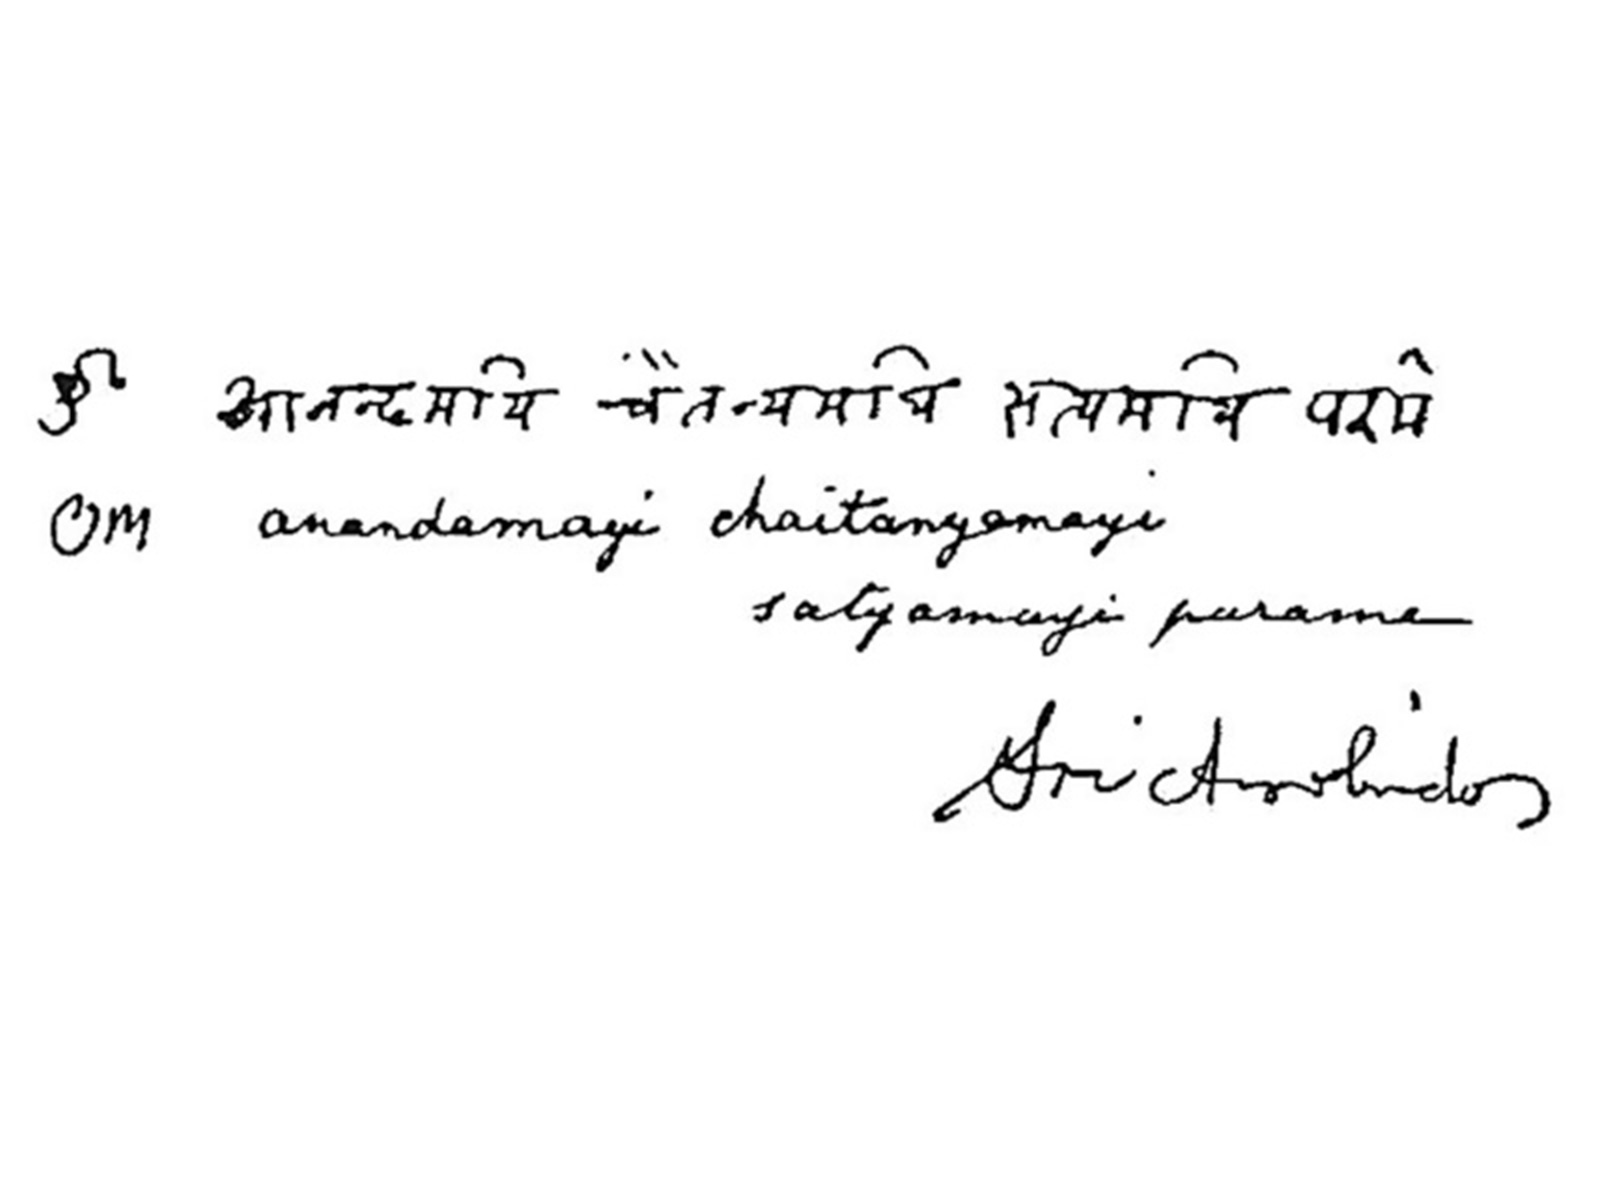 ॐ आनन्दमयि चैतन्यमयि सत्यमयि परमे
OM anandamayi chaitanyamayi
satyamayi parame
Sri Aurobindo